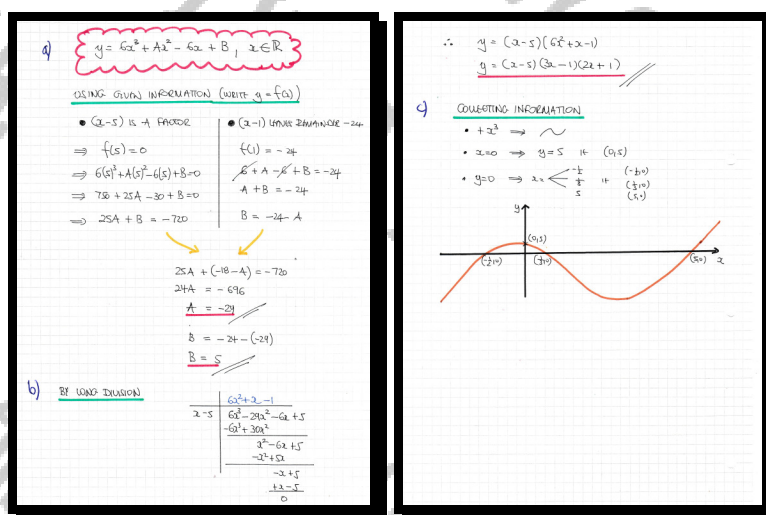 a)
y = 6x³ + Ax² - 6x + B, x∈ℝ
USING GIVEN INFORMATION (WRITE y = f(x))
• (x-5) IS A FACTOR
⇒ f(5) = 0
⇒ 6(5)³ + A(5)² - 6(5) + B = 0
⇒ 750 + 25A - 30 + B = 0
⇒ 25A + B = -720
• (x-1) LEAVES REMAINDER -24
f(1) = -24
6 + A - 6 + B = -24
A + B = -24
B = -24 - A
25A + (-18 - A) = -720
24A = -696
A = -29
B = -24 - (-29)
B = 5
b)
BY LONG DIVISION
6x² + x - 1
x-5 6x³ - 29x² - 6x + 5
-6x³ + 30x²
x² - 6x + 5
-x² + 5x
-x + 5
+x - 5
0
∴ y = (x-5)(6x² + x - 1)
y = (x-5)(3x-1)(2x+1)
c)
COLLECTING INFORMATION
• +x³ ⇒
• x=0 ⇒ y=5 IE (0,5)
• y=0 ⇒ x= -½ ⅓ 5 IE (-½,0) (⅓,0) (5,0)
y
(0,5)
(-½,0) (⅓,0) (5,0) x